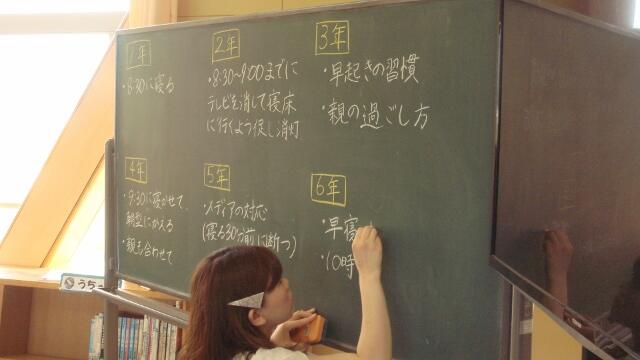 1年
・8:30に寝る
2年
・8:30〜9:00までに
テレビを消して寝床
に行くよう促し消灯
3年
・早起きの習慣
・親の過ごし方
4年
・9:30に寝かせて、
朝型にかえる
・親も合わせて
5年
・メディアの対応
(寝る30分前に断つ)
6年
・早寝
・10時
うちー